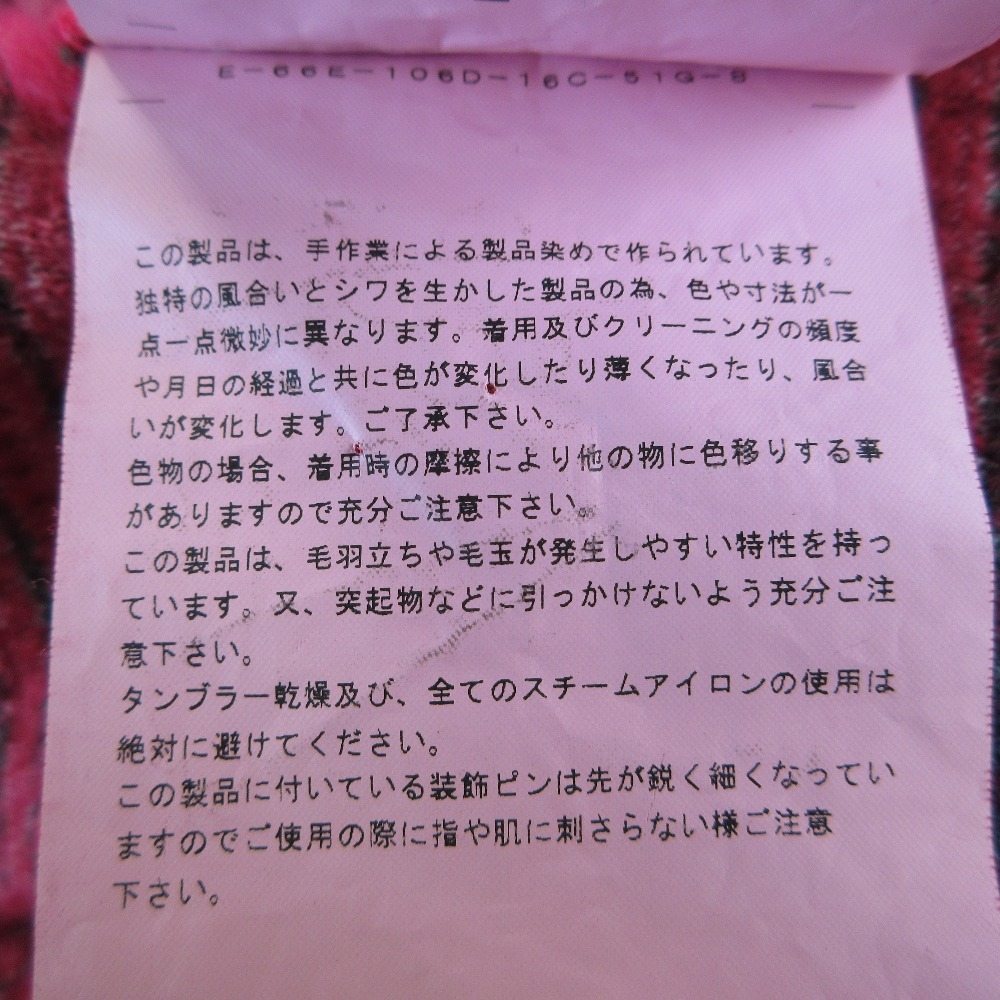 E-66E-106D-16C-51G-8
この製品は、手作業による製品染めで作られています。
独特の風合いとシワを生かした製品の為、色や寸法が一
点一点微妙に異なります。着用及びクリーニングの頻度
や月日の経過と共に色が変化したり薄くなったり、風合
いが変化します。ご了承下さい。
色物の場合、着用時の摩擦により他の物に色移りする事
がありますので充分ご注意下さい。
この製品は、毛羽立ちや毛玉が発生しやすい特性を持っ
ています。又、突起物などに引っかけないよう充分ご注
意下さい。
タンブラー乾燥及び、全てのスチームアイロンの使用は
絶対に避けてください。
この製品に付いている装飾ピンは先が鋭く細くなってい
ますのでご使用の際に指や肌に刺さらない様ご注意
下さい。